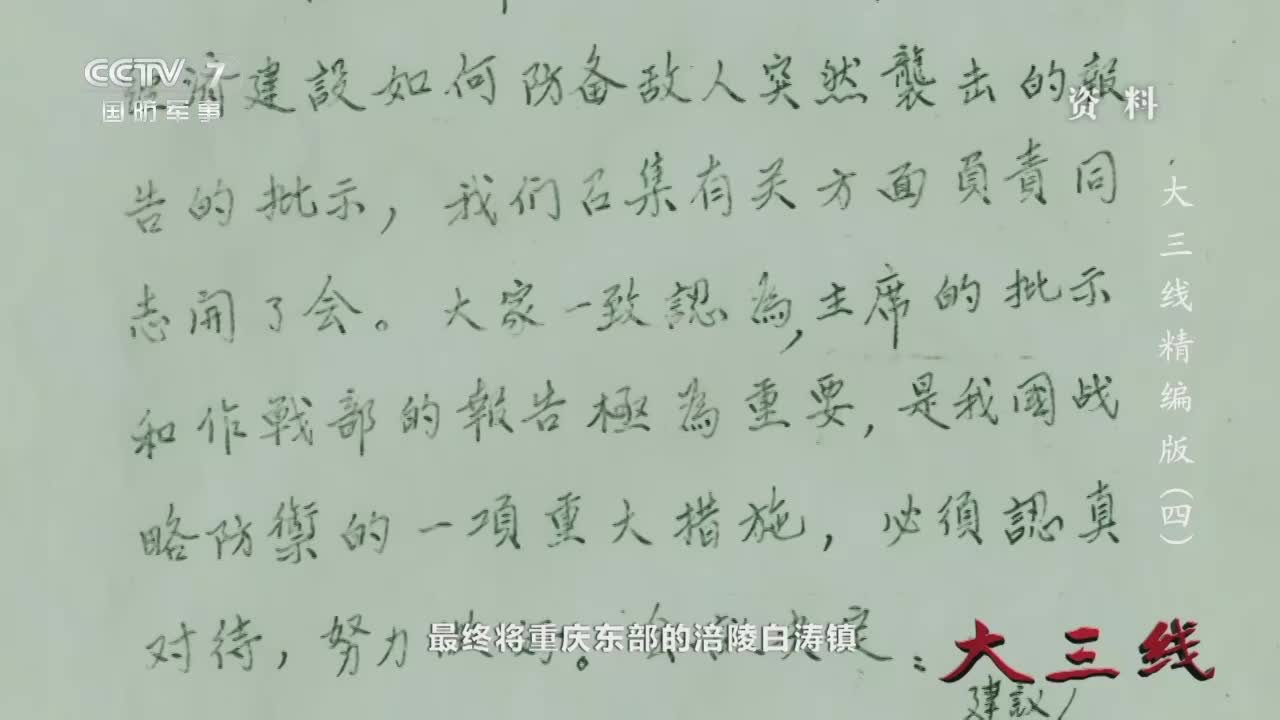 CCTV 7
国防军事
资料
济建設如何防备敌人突然襲击的報
告的批示，我们召集有关方面負責同
志開了会。大家一致認為，主席的批示
和作戰部的報告極為重要，是我國战
略防禦的一項重大措施，必須認真
对待，努力
定：
建議
大三线精编版（四）
最终将重庆东部的涪陵白涛镇
大三线